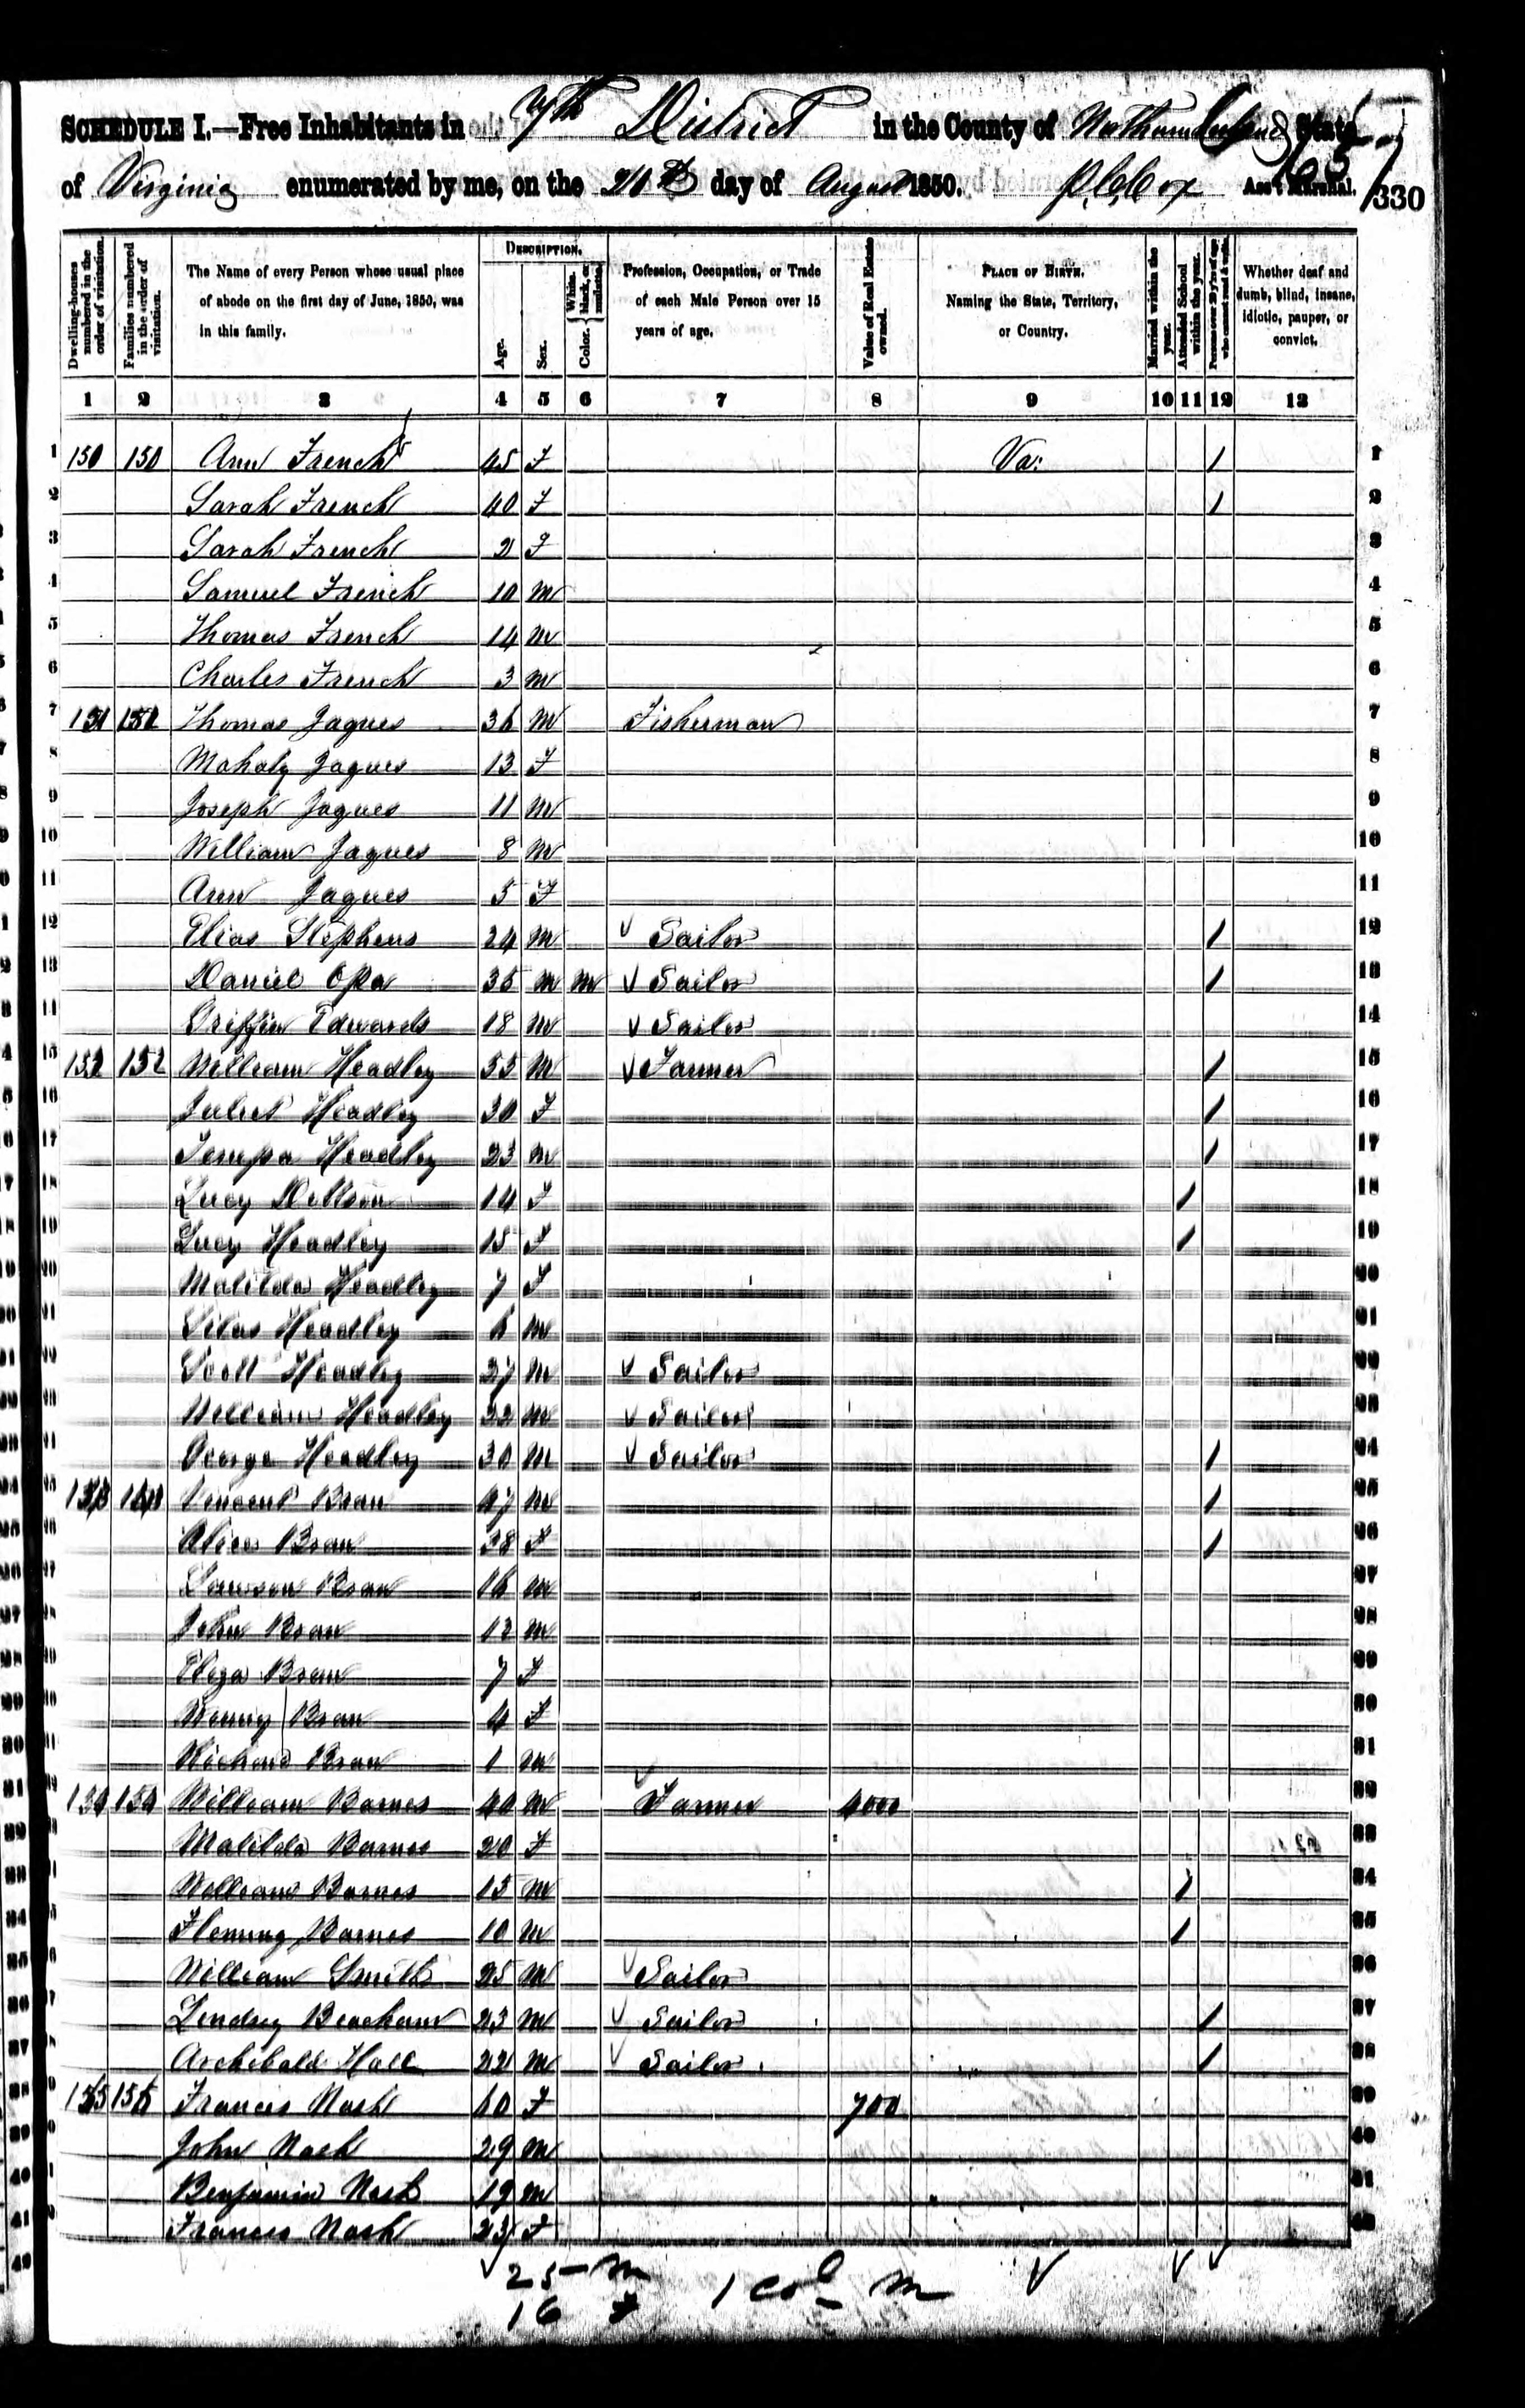 SCHEDULE I.—Free Inhabitants in the 7th District in the County of Northumberland State
of Virginia enumerated by me, on the 20th day of August 1850. Ass't Marshal. 330
Dwelling-houses numbered in the order of visitation. Families numbered in the order of visitation. The Name of every Person whose usual place of abode on the first day of June, 1850, was in this family. DESCRIPTION. Age. Sex. Color. White, black, or mulatto. Profession, Occupation, or Trade of each Male Person over 15 years of age. Value of Real Estate owned. PLACE OF BIRTH. Naming the State, Territory, or Country. Married within the year. Attended School within the year. Persons over 20 y'rs of age who cannot read & write. Whether deaf and dumb, blind, insane, idiotic, pauper, or convict.
1 2 3 4 5 6 7 8 9 10 11 12 13
1 150 150 Ann French 45 F Va: / 1
2 Sarah French 40 F / 2
3 Sarah French 2 F 3
4 Samuel French 10 M 4
5 Thomas French 14 M 5
6 Charles French 3 M 6
7 151 151 Thomas Jaques 36 M Fisherman 7
8 Mahaly Jaques 13 F 8
9 Joseph Jaques 11 M 9
10 William Jaques 8 M 10
11 Ann Jaques 5 F 11
12 Elias Stephens 24 M Sailor / 12
13 Daniel 35 M M Sailor / 13
14 Griffin Edwards 18 M Sailor 14
15 152 152 William Headley 55 M Farmer / 15
16 Juliet Headley 30 F / 16
17 Headley 23 M / 17
18 Lucy 14 F / 18
19 Lucy Headley 15 F / 19
20 Matilda Headley 7 F 20
21 Silas Headley 6 M 21
22 Scott Headley 27 M Sailor 22
23 William Headley 22 M Sailor 23
24 George Headley 30 M Sailor / 24
25 153 153 Vincent Bran 47 M / 25
26 Alice Bran 38 F / 26
27 Lawson Bran 16 M 27
28 John Bran 12 M 28
29 Eliza Bran 7 F 29
30 Bran 4 F 30
31 Richard Bran 1 M 31
32 154 154 William Barnes 40 M Farmer 4000 32
33 Matilda Barnes 20 F 33
34 William Barnes 15 M / 34
35 Fleming Barnes 10 M / 35
36 William Smith 25 M Sailor 36
37 Lindsey Beacham 23 M Sailor / 37
38 Archibald Hall 22 M Sailor / 38
39 155 155 Frances Nash 60 F 700 39
40 John Nash 29 M 40
41 Benjamin Nash 19 M 41
42 Frances Nash 23 F 42
25 M 1 Col M
16 F